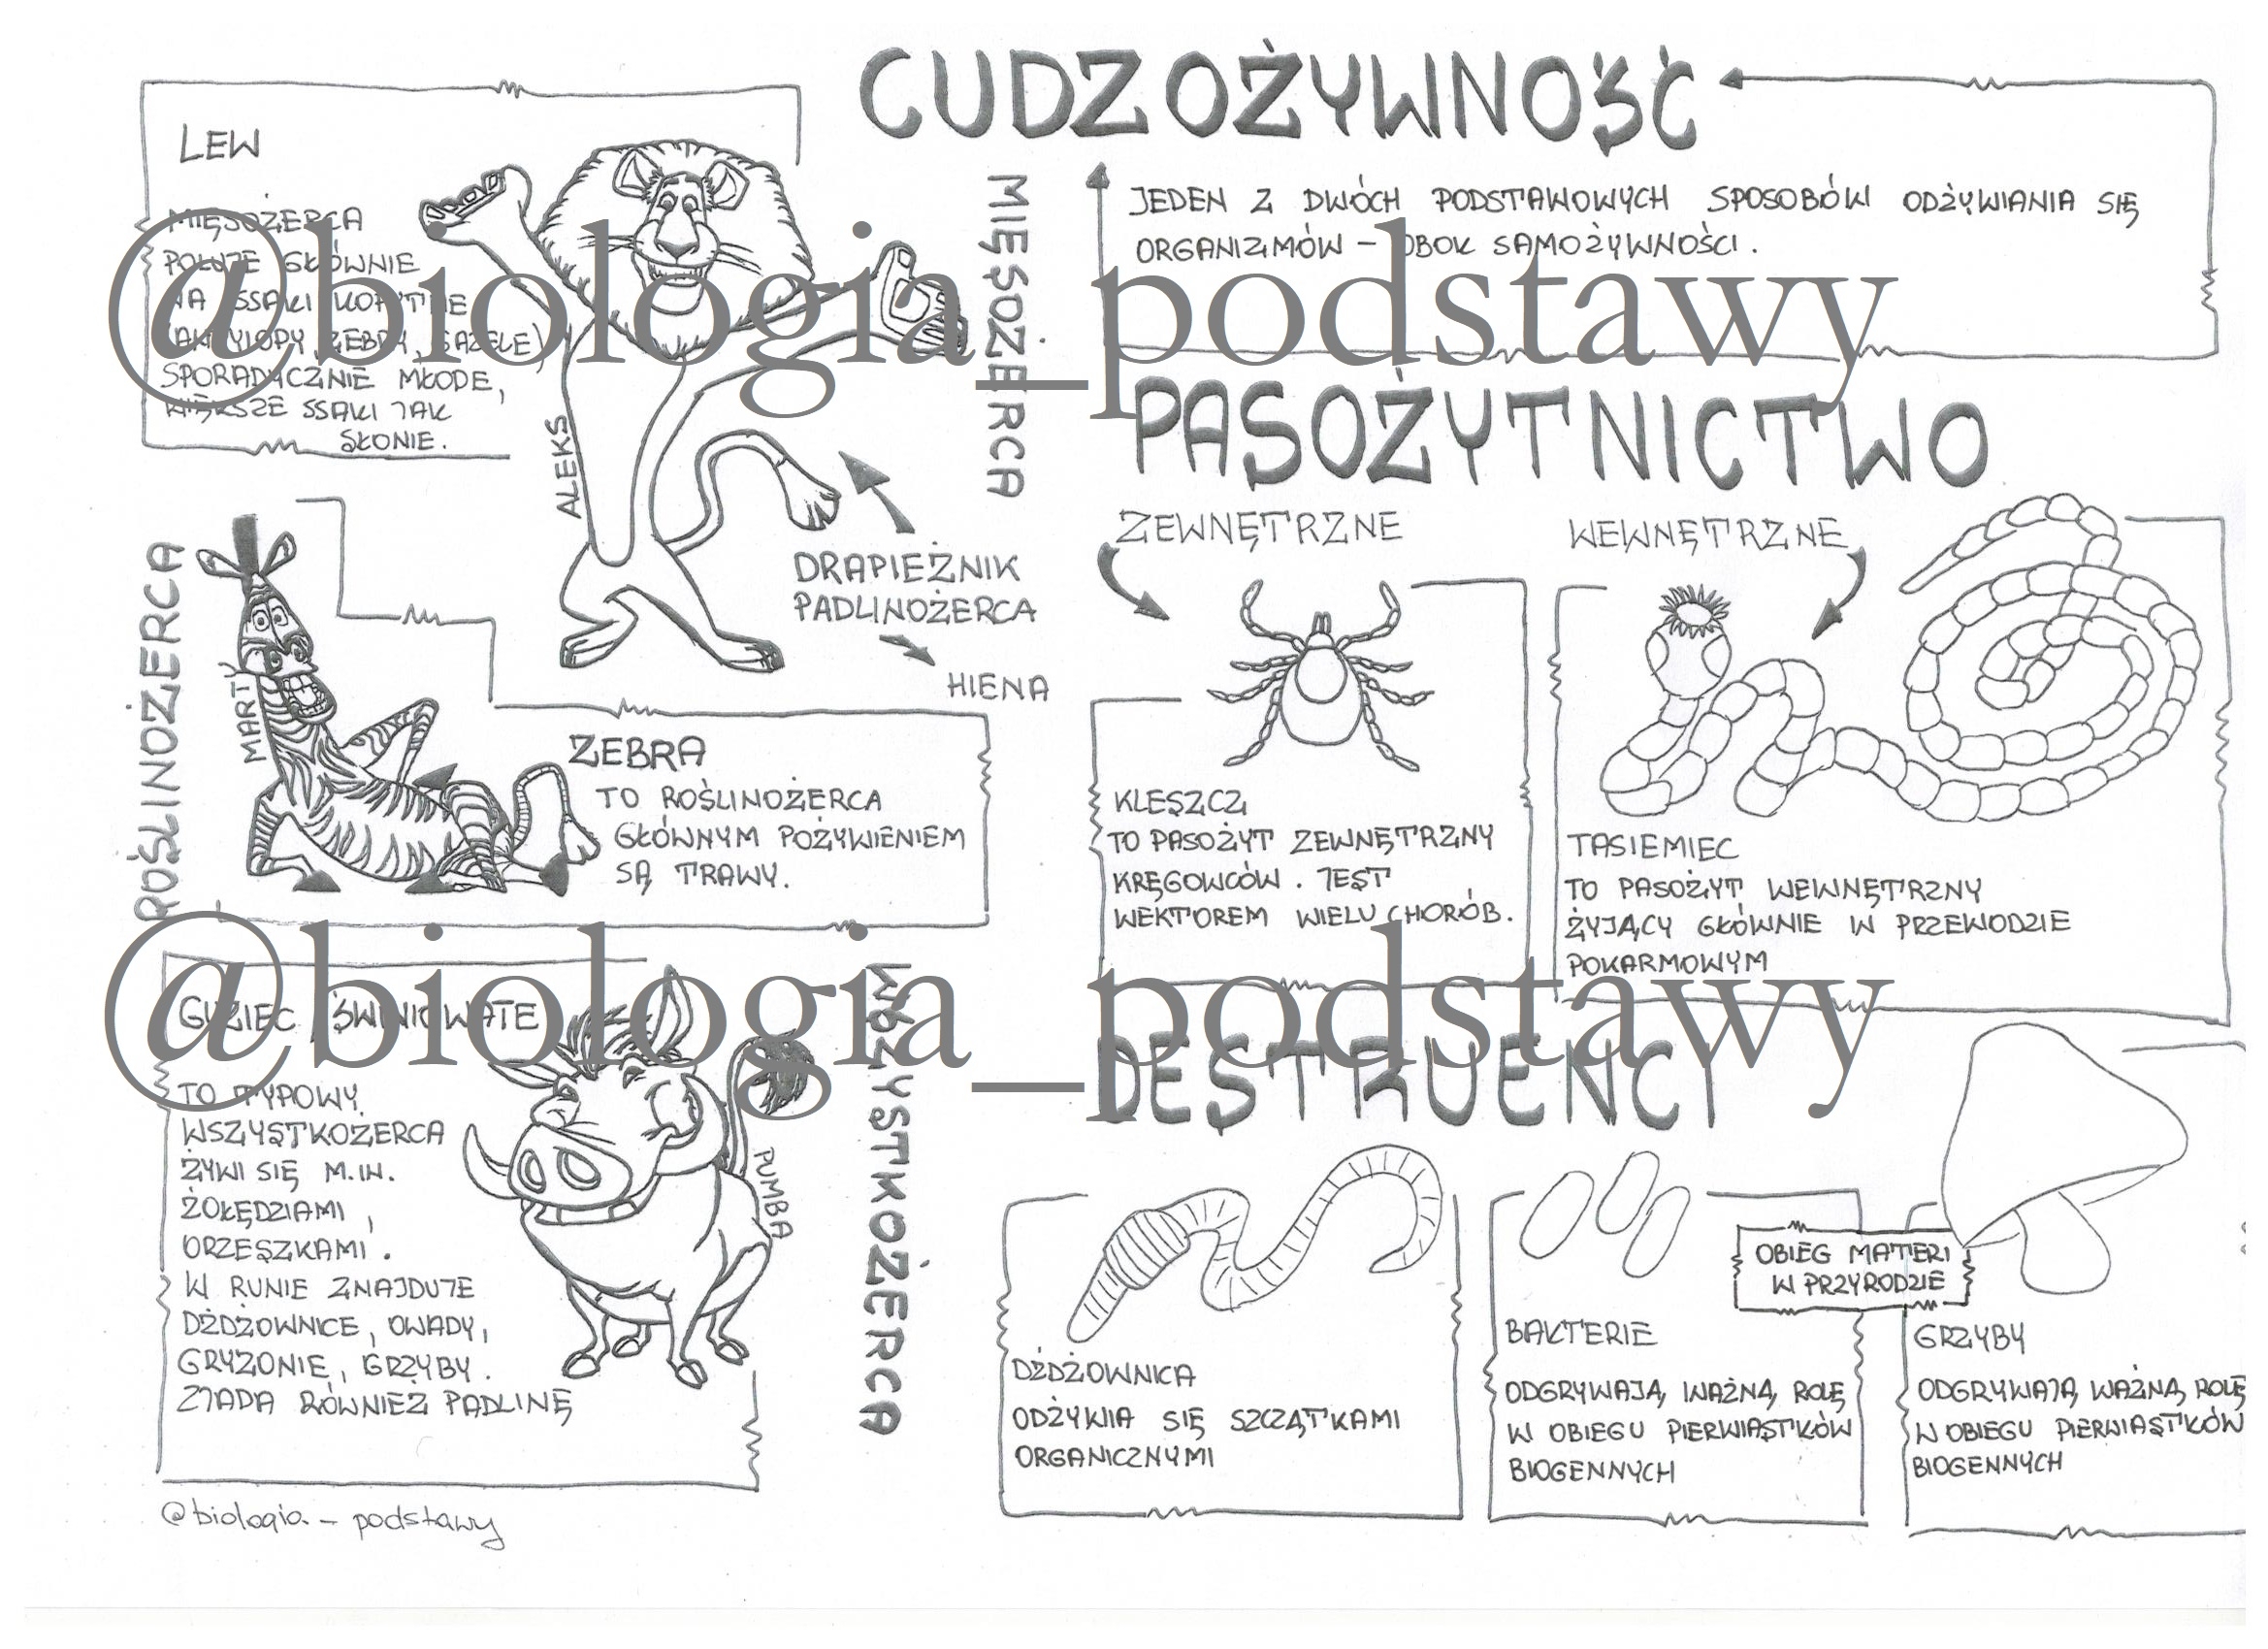 CUDZOŻYWNOŚĆ
JEDEN Z DWÓCH PODSTAWOWYCH SPOSOBÓW ODŻYWIANIA SIĘ
ORGANIZMÓW – OBOK SAMOŻYWNOŚCI.
LEW
MIĘSOŻERCA
POLUJE GŁÓWNIE
NA SSAKI KOPYTNE
(ANTYLOPY, ZEBRY, GAZELE)
SPORADYCZNIE MŁODE,
WIĘKSZE SSAKI JAK
SŁONIE.
ALEKS
MIĘSOŻERCA
DRAPIEŻNIK
PADLINOŻERCA
HIENA
ROŚLINOŻERCA
MARTY
ZEBRA
TO ROŚLINOŻERCA
GŁÓWNYM POŻYWIENIEM
SĄ TRAWY.
GUZIEC /ŚWINIOWATE
TO TYPOWY
WSZYSTKOŻERCA
ŻYWI SIĘ M.IN.
ŻOŁĘDZIAMI,
ORZESZKAMI.
W RUNIE ZNAJDUJE
DŻDŻOWNICE, OWADY,
GRYZONIE, GRZYBY.
ZJADA RÓWNIEŻ PADLINĘ
PUMBA
WSZYSTKOŻERCA
PASOŻYTNICTWO
ZEWNĘTRZNE
WEWNĘTRZNE
KLESZCZ
TO PASOŻYT ZEWNĘTRZNY
KRĘGOWCÓW. JEST
WEKTOREM WIELU CHORÓB.
TASIEMIEC
TO PASOŻYT WEWNĘTRZNY
ŻYJĄCY GŁÓWNIE W PRZEWODZIE
POKARMOWYM
DESTRUENCI
DŻDŻOWNICA
ODŻYWIA SIĘ SZCZĄTKAMI
ORGANICZNYMI
BAKTERIE
ODGRYWAJĄ WAŻNĄ ROLĘ
W OBIEGU PIERWIASTKÓW
BIOGENNYCH
OBIEG MATERI
W PRZYRODZIE
GRZYBY
ODGRYWAJĄ WAŻNĄ ROLĘ
W OBIEGU PIERWIASTKÓW
BIOGENNYCH
@biologia_podstawy
@biologia_podstawy
@biologia_podstawy